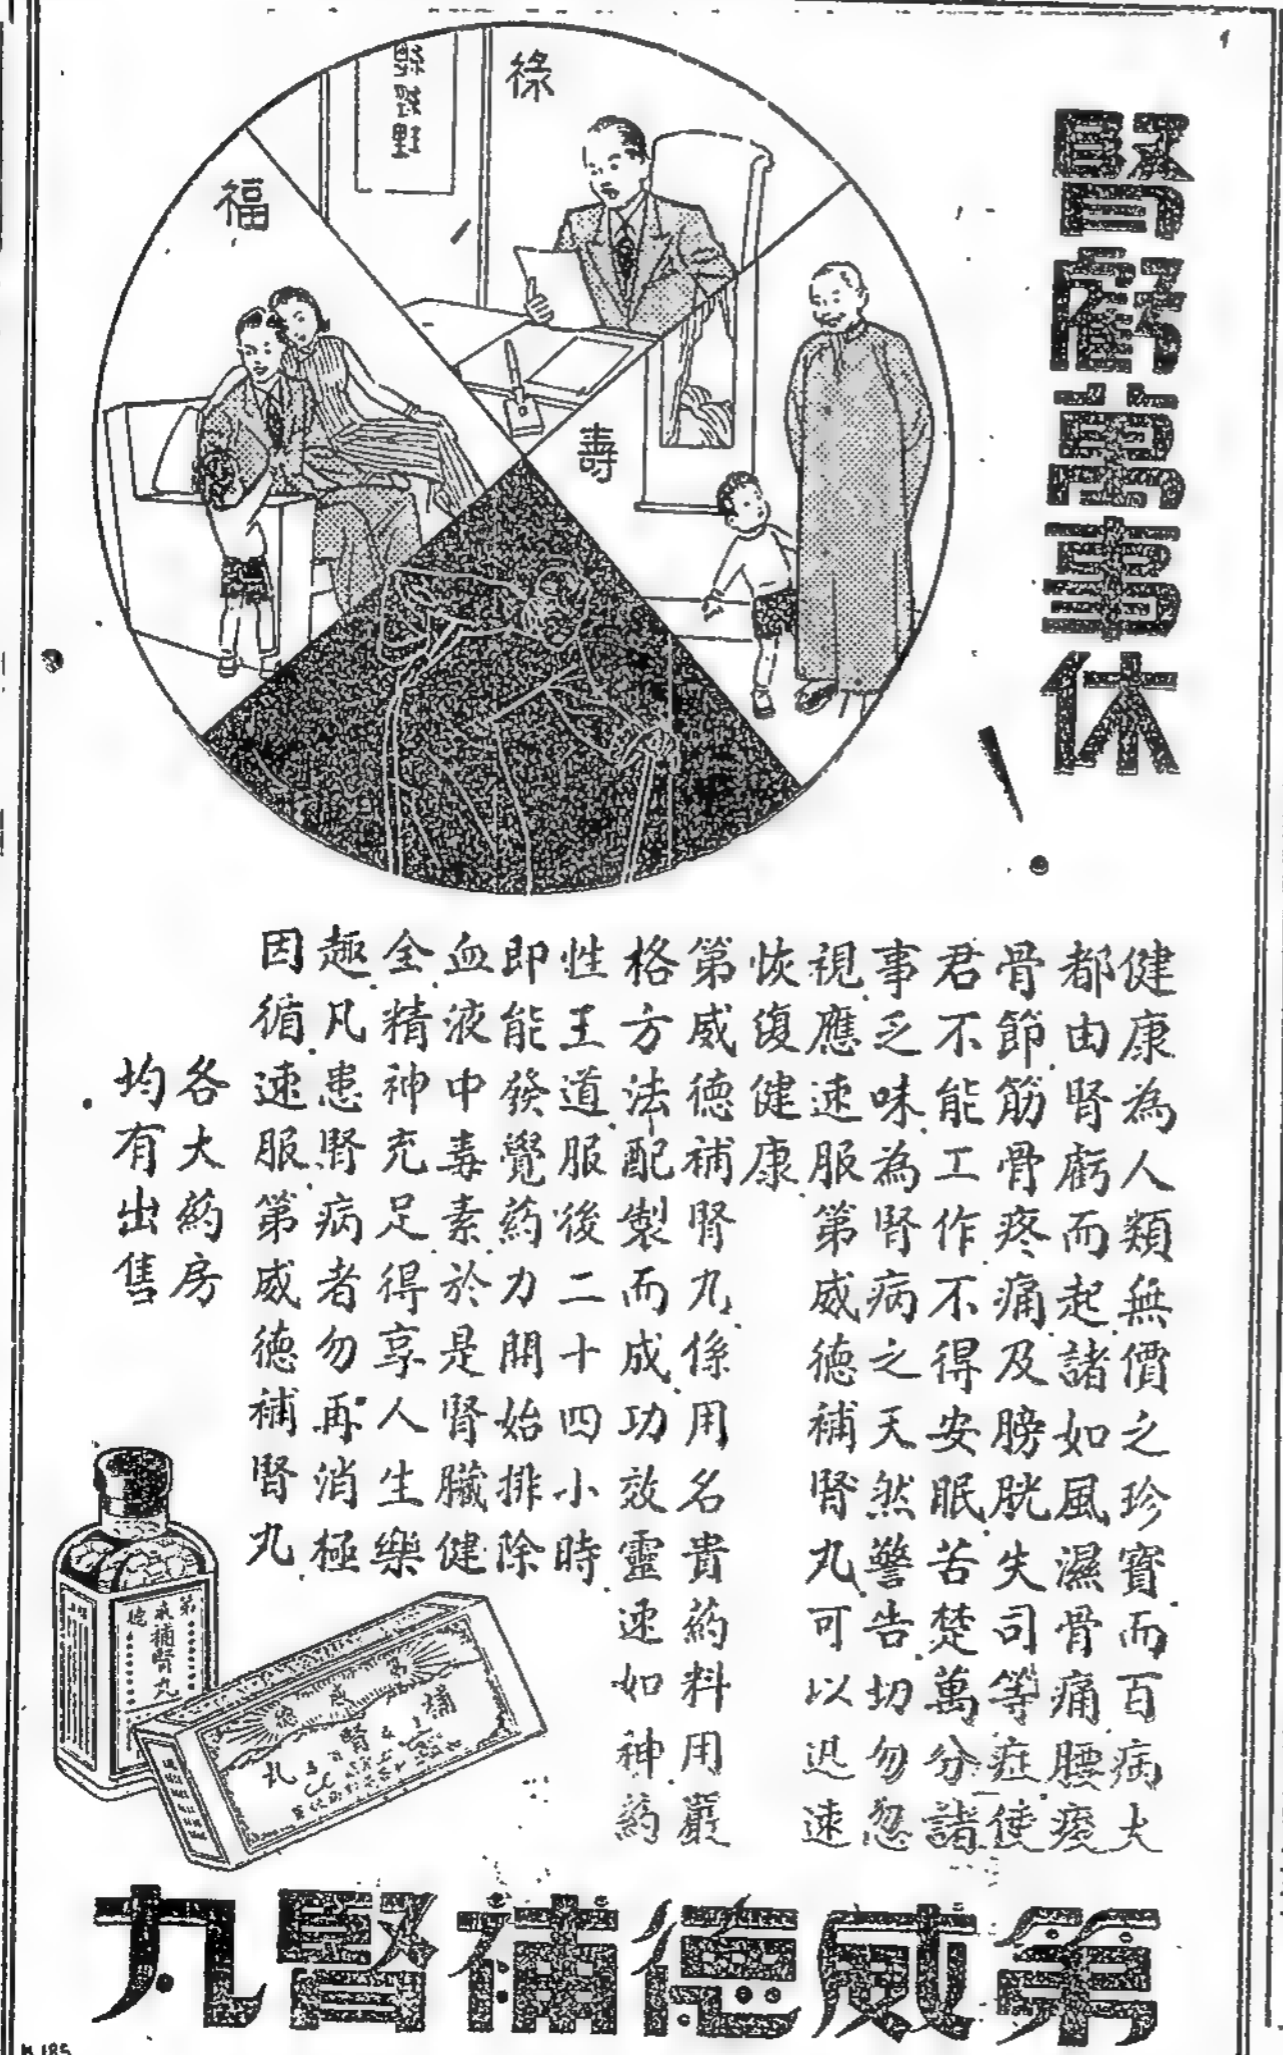 腎虧萬事休！
祿
福
壽
健康為人類無價之珍寶而百病大
都由腎虧而起諸如風濕骨痛腰痠
骨節筋骨疼痛及膀胱失司等症使
君不能工作不得安眠苦楚萬分諸
事乏味為腎病之天然警告切勿忽
視應速服第威德補腎丸可以迅速
恢復健康
第威德補腎丸係用名貴葯料用嚴
格方法配製而成功效靈速如神葯
性王道服後二十四小時
即能發覺葯力開始排除
血液中毒素於是腎臟健
全精神充足得享人生樂
趣凡患腎病者勿再消極
因循速服第威德補腎丸
各大葯房
均有出售
第威德
補腎丸
第威德
補腎丸
第威德補腎丸
K185